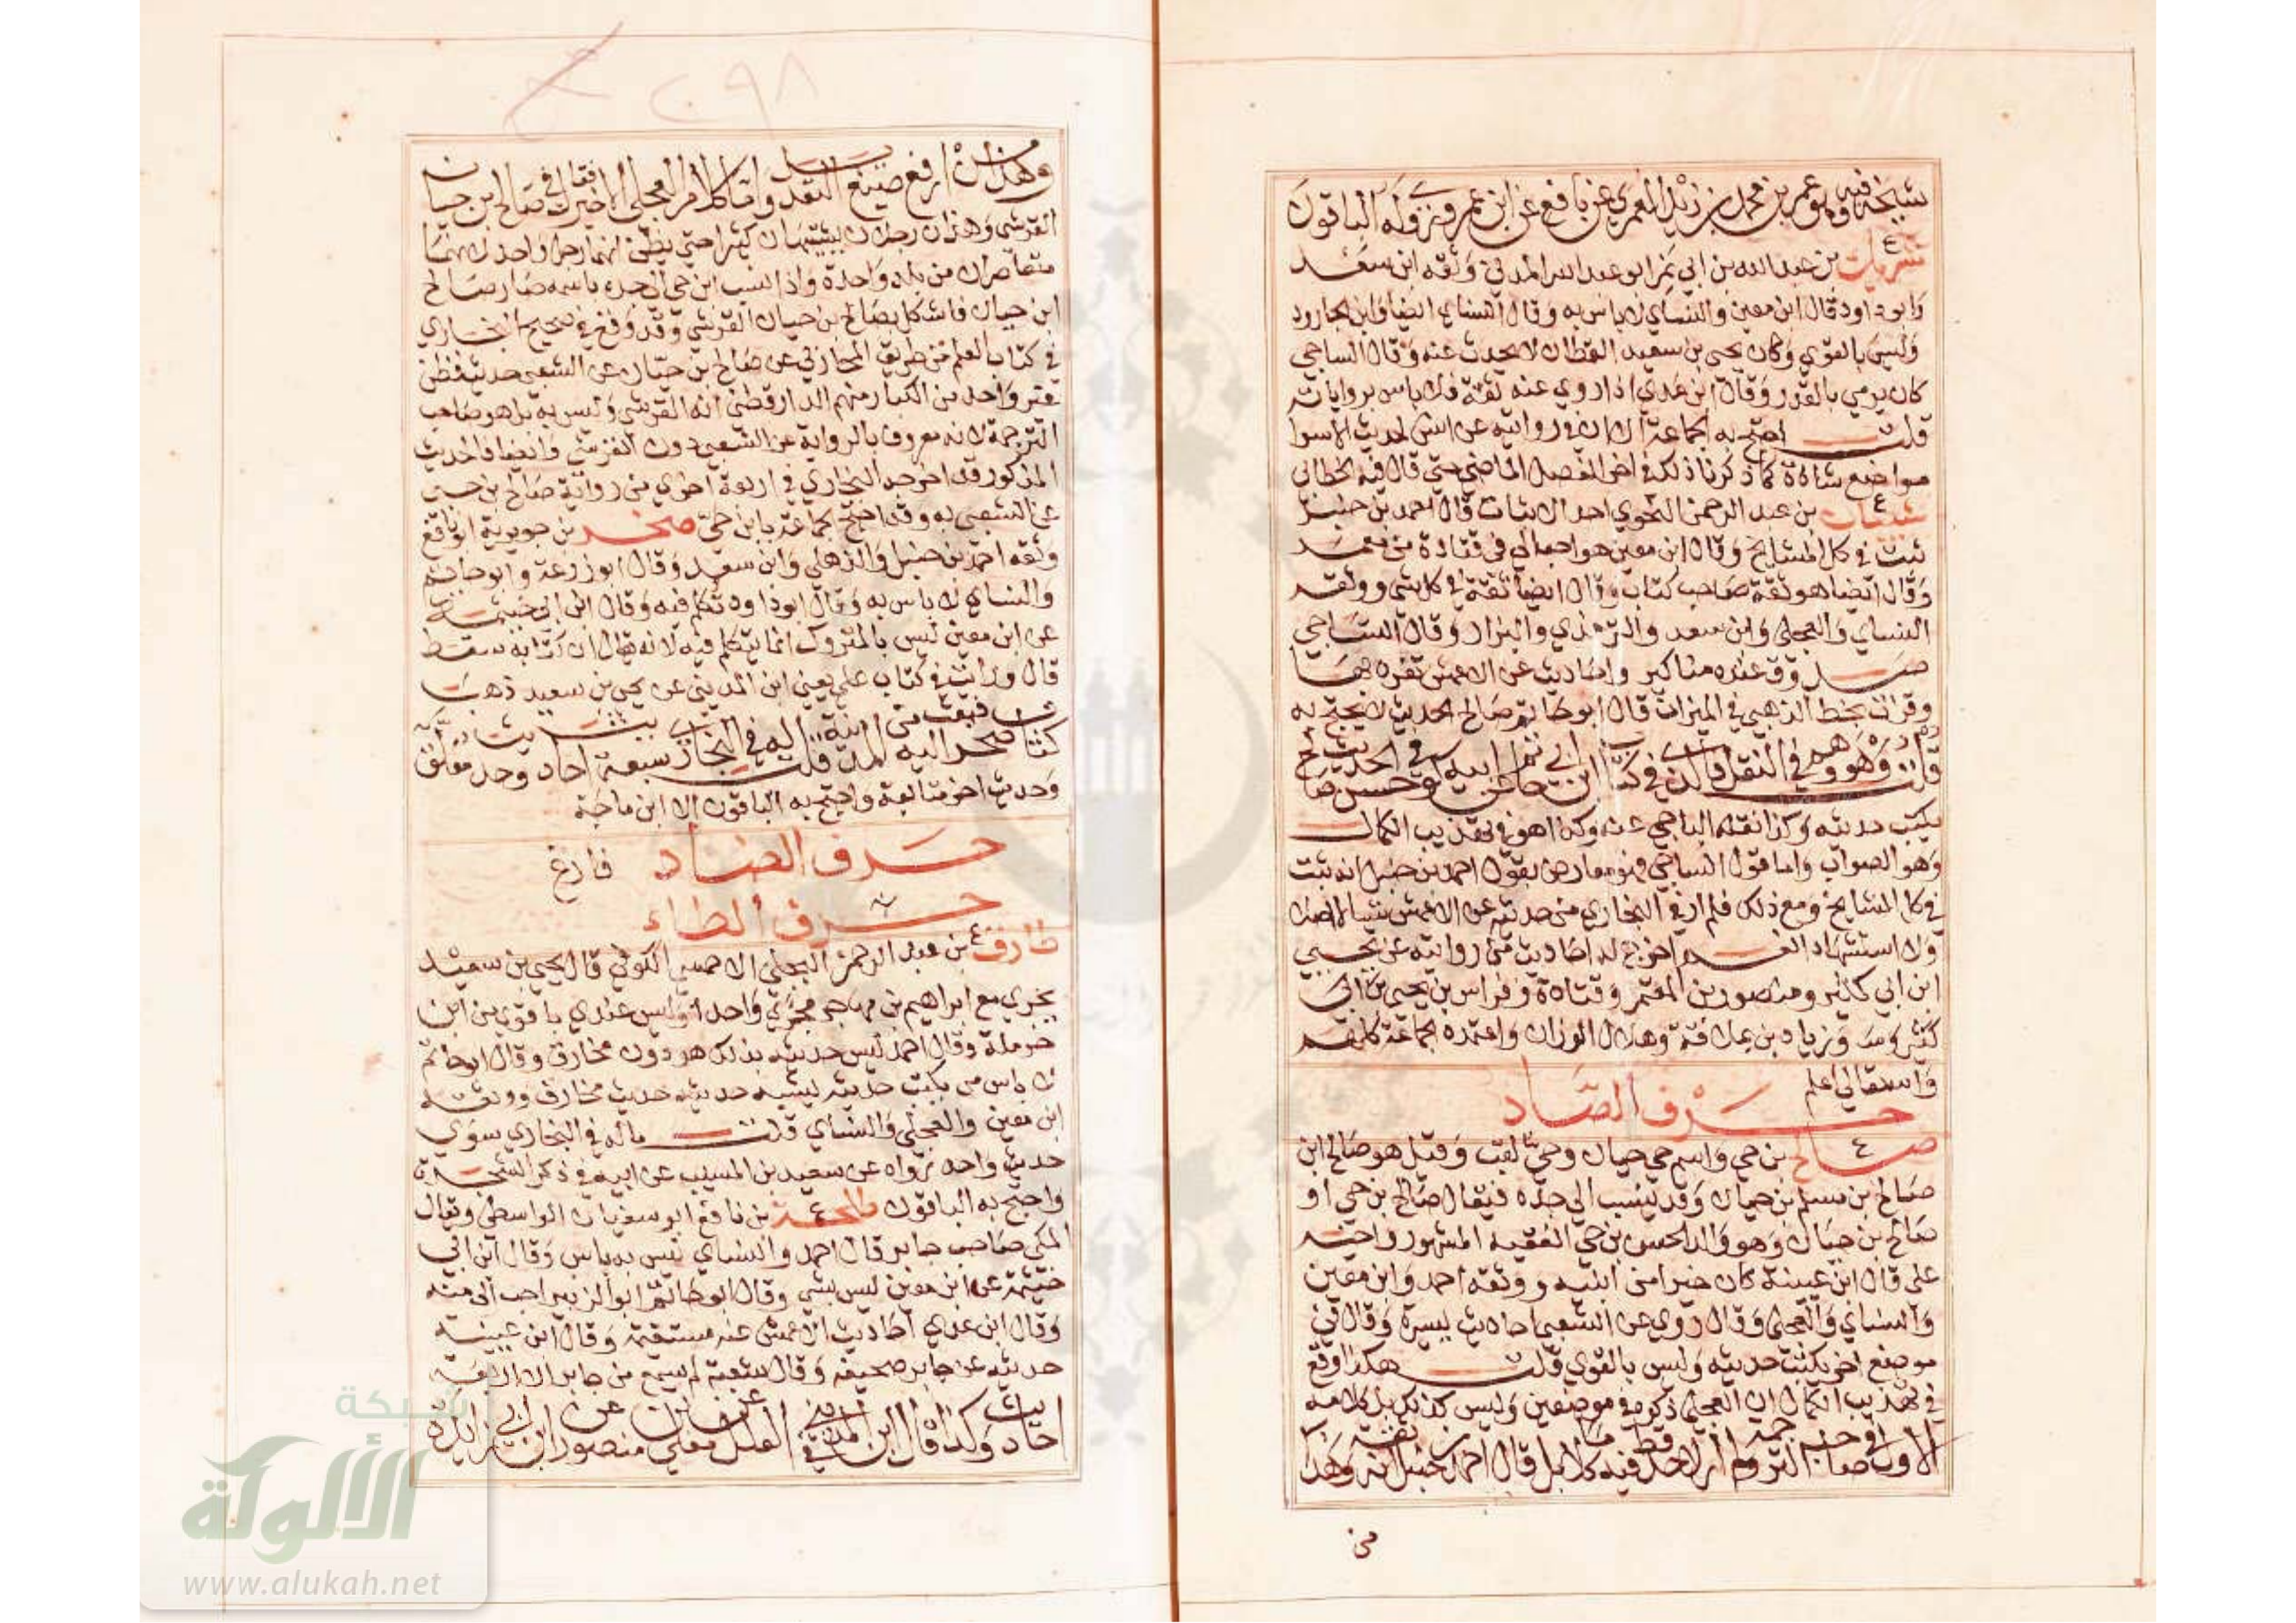 شيخه فيه وهو عمر بن محمد بن زيد العمري عن نافع عن ابن عمر وروي له الباقون
شريك ع بن عبد الله بن ابي نمر ابو عبد الله المدني وثقه ابن سعد
وابو داود قال ابن معين والنسائي لا باس به وقال النسائي ايضا وابن الجارود
وليس بالقوي وكان يحيى بن سعيد القطان لا يحدث عنه وقال الساجي
كان يرمي بالقدر وقال ابن عدي اذا روي عنه ثقة فلا باس برواياته
قلت احتج به الجماعة الا ان في روايته عن انس لحديث الاسرا
مواضع شاذة كما ذكرنا ذلك في اخر الفصل الماضي حتى قال فيه الخطابي
شيبان ع بن عبد الرحمن النحوي احد الاثبات قال احمد بن حنبل
ثبت في كل المشايخ وقال ابن معين هو احب الي في قتادة من معمر
وقال ايضا هو ثقة صاحب كتاب وقال ايضا ثقة في كل شي ووثقه
النسائي والعجلي وابن سعد والترمذي والبزار وقال الساجي
صدوق عنده مناكير واحاديث عن الاعمش تفرد بها
وقرات بخط الذهبي في الميزان قال ابو حاتم صالح الحديث لا يحتج به
قلت وهو وهم في النقل فالذي في كتاب ابن ابي حاتم عن ابيه كوفي حسن الحديث صالح
يكتب حديثه وكذا نقله الباجي عنه وكذا هو في تهذيب الكمال
وهو الصواب واما قول الساجي فهو معارض بقول احمد بن حنبل انه ثبت
في كل المشايخ ومع ذلك فلم ار في البخاري من حديثه عن الاعمش شيئا لا اصلا
ولا استشهادا نعم اخرج له احاديث من روايته عن يحيى
ابن ابي كثير ومنصور بن المعتمر وقتادة وفراس بن يحيى بن ابي
كثير وزياد بن علاقة وهلال الوزان واعتمده الجماعة كلهم
والله تعالى اعلم
حرف الصاد
صالح ع بن حي واسم حي حيان وحي لقب وقيل هو صالح ابن
صالح بن مسلم بن حيان وقد ينسب الى جده فيقال صالح بن حي او
صالح بن حيان وهو والد الحسن بن حي الفقيه المشهور واخيه
علي قال ابن عيينة كان خيرا من ابنيه ووثقه احمد وابن معين
والنسائي والعجلي وقال روي عن الشعبي احاديث يسيرة وقال في
موضع اخر يكتب حديثه وليس بالقوي قلت هكذا وقع
في تهذيب الكمال ان العجلي ذكره في موضعين وليس كذلك بل كلامه
الاول في صاحب الترجمة ولم ار لاحد قط فيه كلاما بل قال احمد بن حنبل ثقة ثقة وهذا
من
٩٨
وهذا من ارفع صيغ التعديل واما كلام العجلي الاخير فقاله في صالح بن حيان
القرشي وهذان رجلان يشتبهان كثيرا حتى يظن انهما رجل واحد لانهما
متعاصران من بلد واحدة واذا نسب ابن حي الى جده باسمه صار صالح
ابن حيان فاشكل بصالح بن حيان القرشي وقد وقع في صحيح البخاري
في كتاب العلم من طريق المحاربي عن صالح بن حيان عن الشعبي حديث فظن
غير واحد من الكبار منهم الدارقطني انه القرشي وليس به بل هو صاحب
الترجمة لانه معروف بالرواية عن الشعبي دون القرشي وايضا فالحديث
المذكور قد اخرجه البخاري في اربعة اخرى من رواية صالح بن حي
عن الشعبي به وقد احتج الجماعة بابن حي صخر بن جويرية ابو نافع
وثقه احمد بن حنبل والذهلي وابن سعد وقال ابو زرعة وابو حاتم
والنسائي لا باس به وقال ابو داود تكلم فيه وقال ابن ابي خيثمة
عن ابن معين ليس بالمتروك انما يتكلم فيه لانه يقال ان كتابه سقط
قال ورايت في كتاب علي يعني ابن المديني عن يحيى بن سعيد ذهب
كتاب صخر فبعث اليه من المدينة قلت له في البخاري سبعة احاديث وحديث معلق
وحديث اخر متابعة واحتج به الباقون الا ابن ماجة
حرف الضاد فارغ
حرف الطاء
طارق ع بن عبد الرحمن البجلي الاحمسي الكوفي قال يحيى بن سعيد
يجري مع ابراهيم بن مهاجر مجرى واحدا وليس عندي باقوى من ابن
حرملة وقال احمد ليس حديثه بذلك هو دون مخارق وقال ابو حاتم
لا باس به يكتب حديثه يشبه حديثه حديث مخارق ووثقه
ابن معين والعجلي والنسائي قلت ماله في البخاري سوى
حديث واحد رواه عن سعيد بن المسيب عن ابيه في ذكر الشجرة
واحتج به الباقون طلحة ع بن نافع ابو سفيان الواسطي ويقال
المكي صاحب جابر قال احمد والنسائي ليس به باس وقال ابن ابي
خيثمة عن ابن معين ليس بشي وقال ابو حاتم ابو الزبير احب الي منه
وقال ابن عدي احاديث الاعمش عنه مستقيمة وقال ابن عيينة
حديثه عن جابر صحيفة وقال شعبة لم يسمع من جابر الا اربعة
احاديث وكذا قال ابن المديني في العلل عن معلى بن منصور عن ابن ابي زايدة
شبكة
الألوكة
www.alukah.net